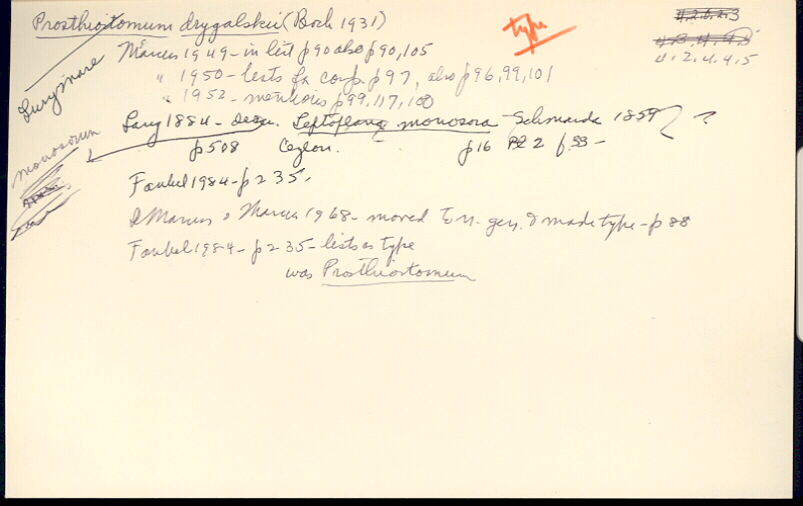 Prosthiostomum drygalskii (Bock 1931)
type
4.2.4.4.5
Lurymare
Marcus 1949 - in list p90 also p90, 105
" 1950 - lists for comp. p97, also p96, 99, 101
" 1952 - mentions p99, 117, 100
Lang 1884 - descr. Leptoplana monosora - Schmarda 1859 ?
p508 Ceylon. p16 Pl 2 f.
monosorum
Faubel 1984 - p235.
Marcus & Marcus 1968 - moved to n. gen. & made type - p88
Faubel 1984 - p235 - lists as type
was Prosthiostomum